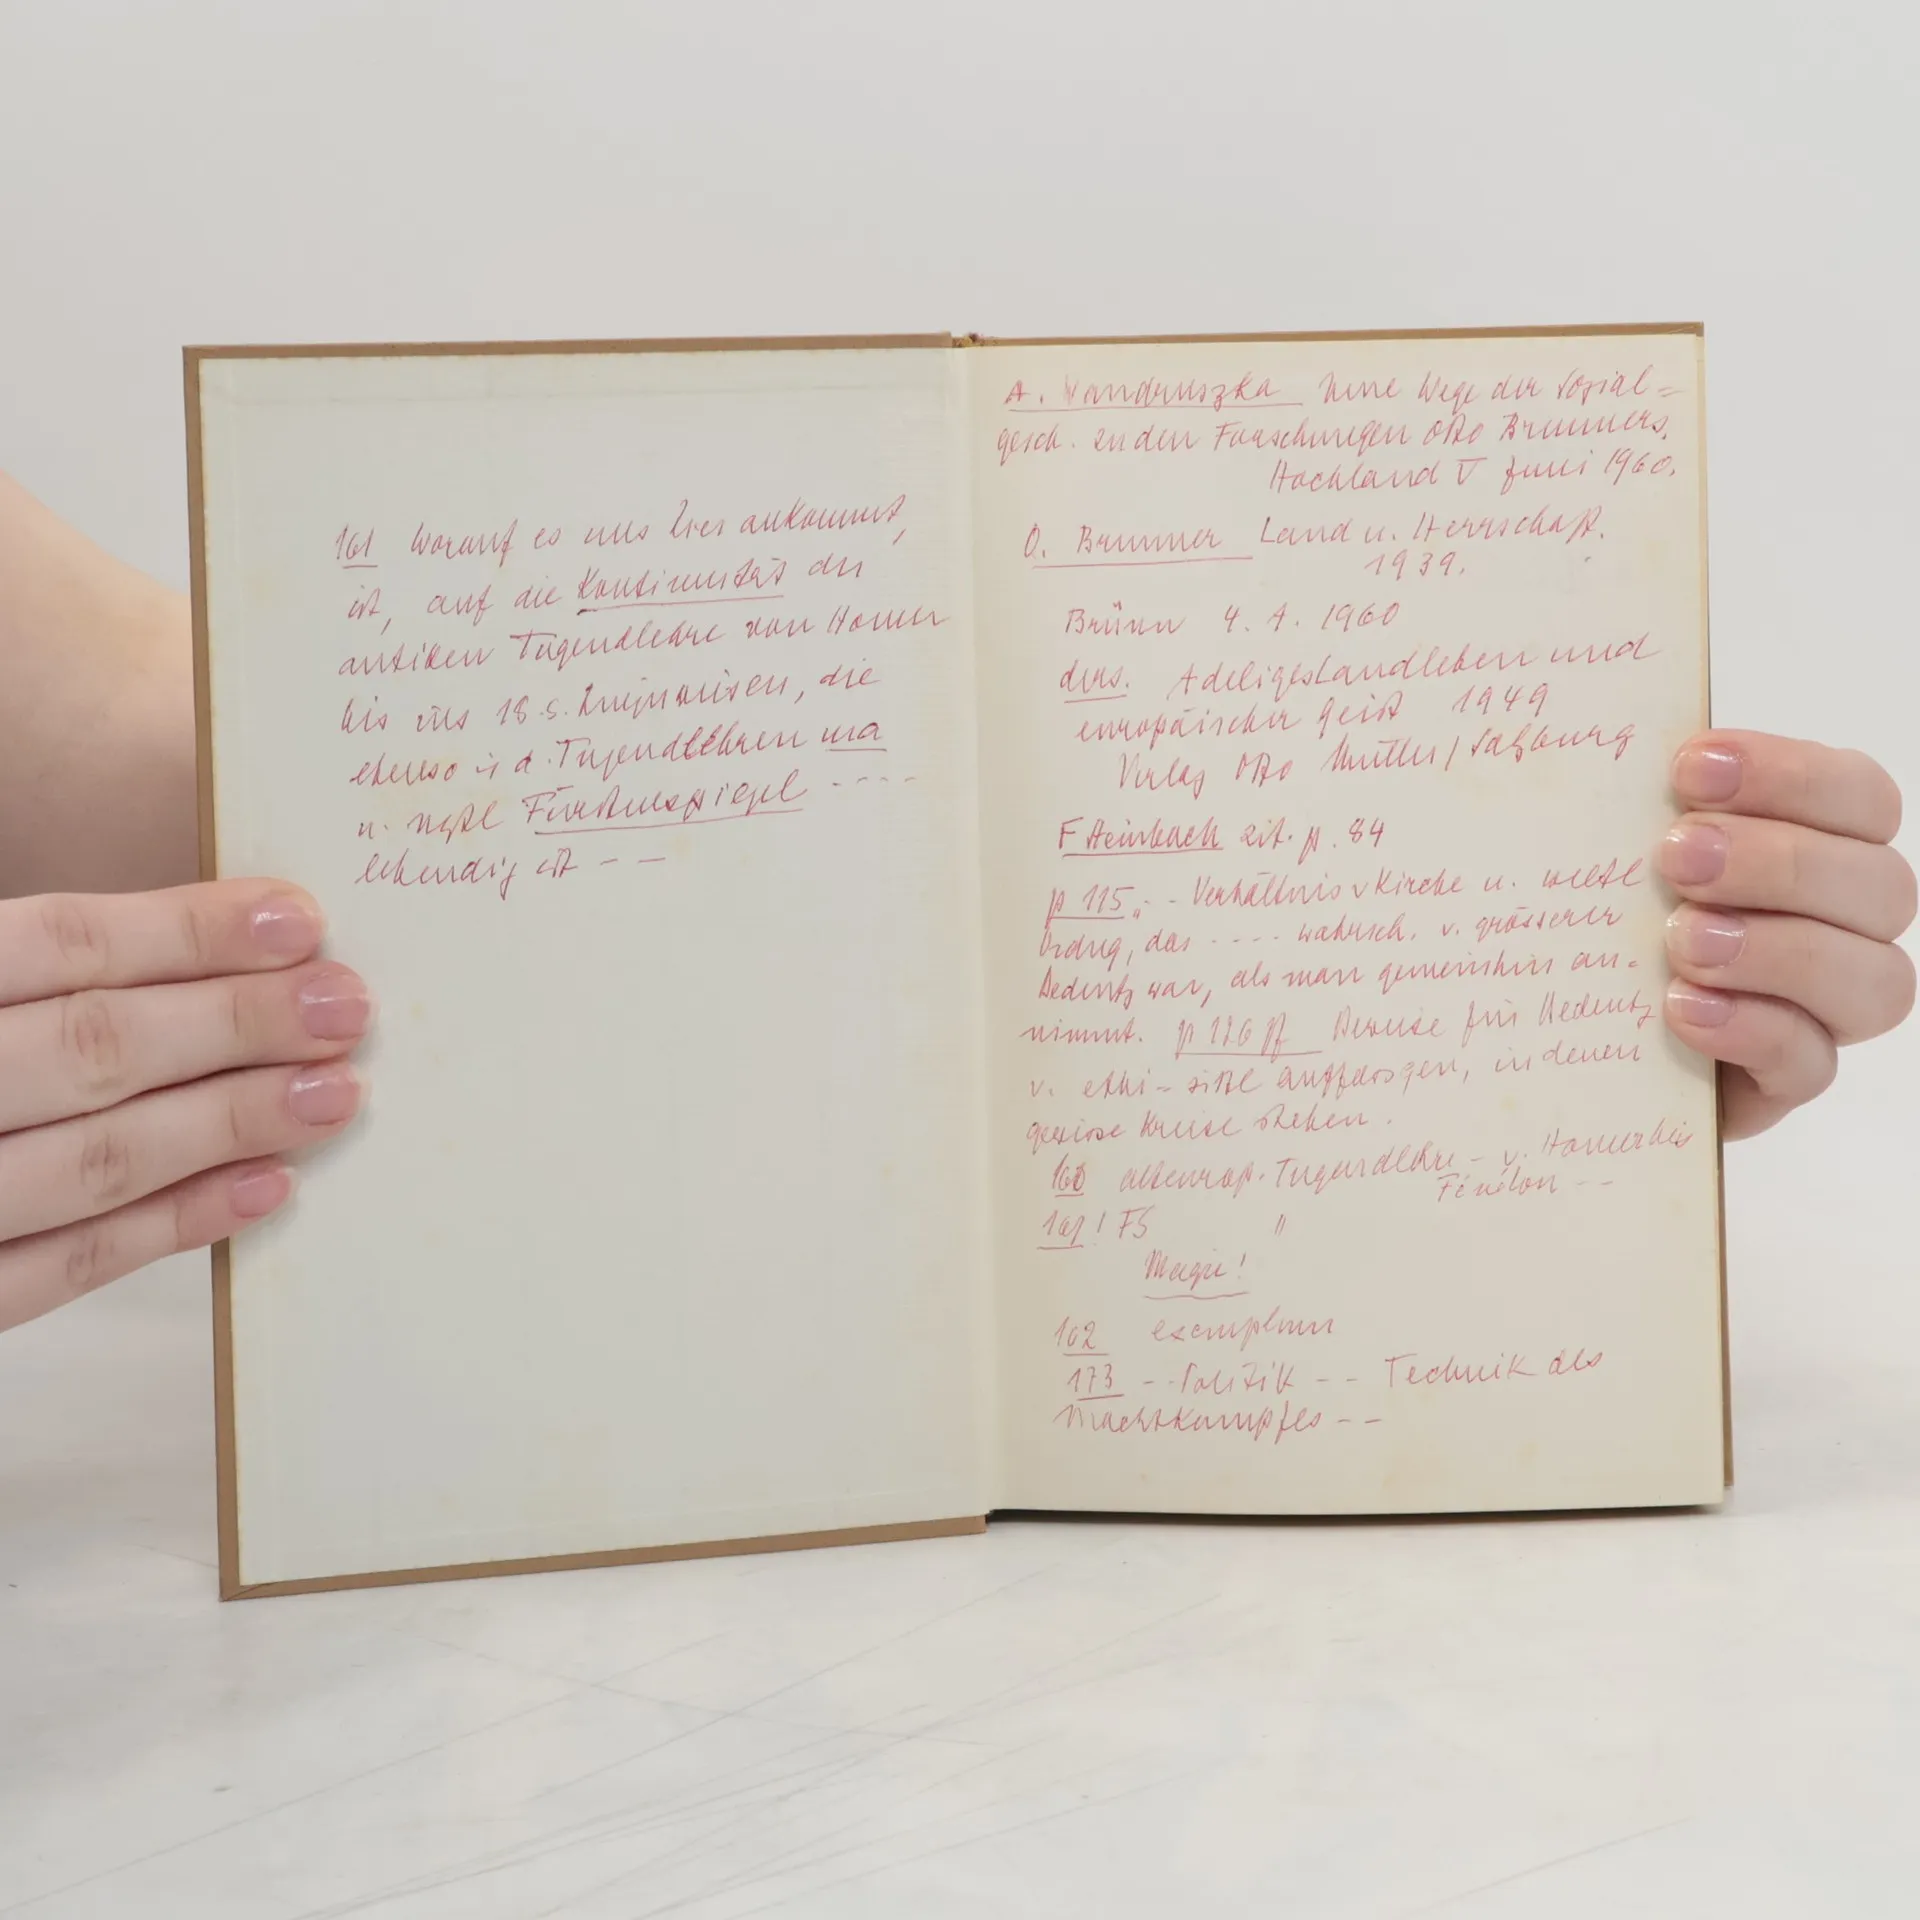 161 Worauf es uns hier ankommt,
ist, auf die Kontinuität der
antiken Tugendlehre von Homer
bis ins 18. s. hinzuweisen, die
ebenso i. d. Tugendlehren ma
u. Fürstenspiegel ----
lebendig ist ---
A. Wandruszka Neue Wege der Sozial=
gesch. zu den Forschungen Otto Brunners.
Hochland V Juni 1960.
O. Brunner Land u. Herrschaft.
1939.
Brünn 4. 1. 1960
ders. Adeliges Landleben und
europäischer Geist 1949
Verlag Otto Müller / Salzburg
F Steinbach zit. p. 84
p 115 „-- Verhältnis v Kirche u. weltl
Ordng, das ---- wahrsch. v. grösserer
Bedeutg war, als man gemeinhin an=
nimmt. p 126 ff Beweise für Bedeutg
v. ethi- sittl Auffassgen, in denen
gewisse Kreise stehen.
160 alteurop. Tugendlehre - v. Homer bis
Fénélon --
161 ! FS "
Magie!
162 exemplum
173 -- Politik -- Technik des
Machtkampfes --